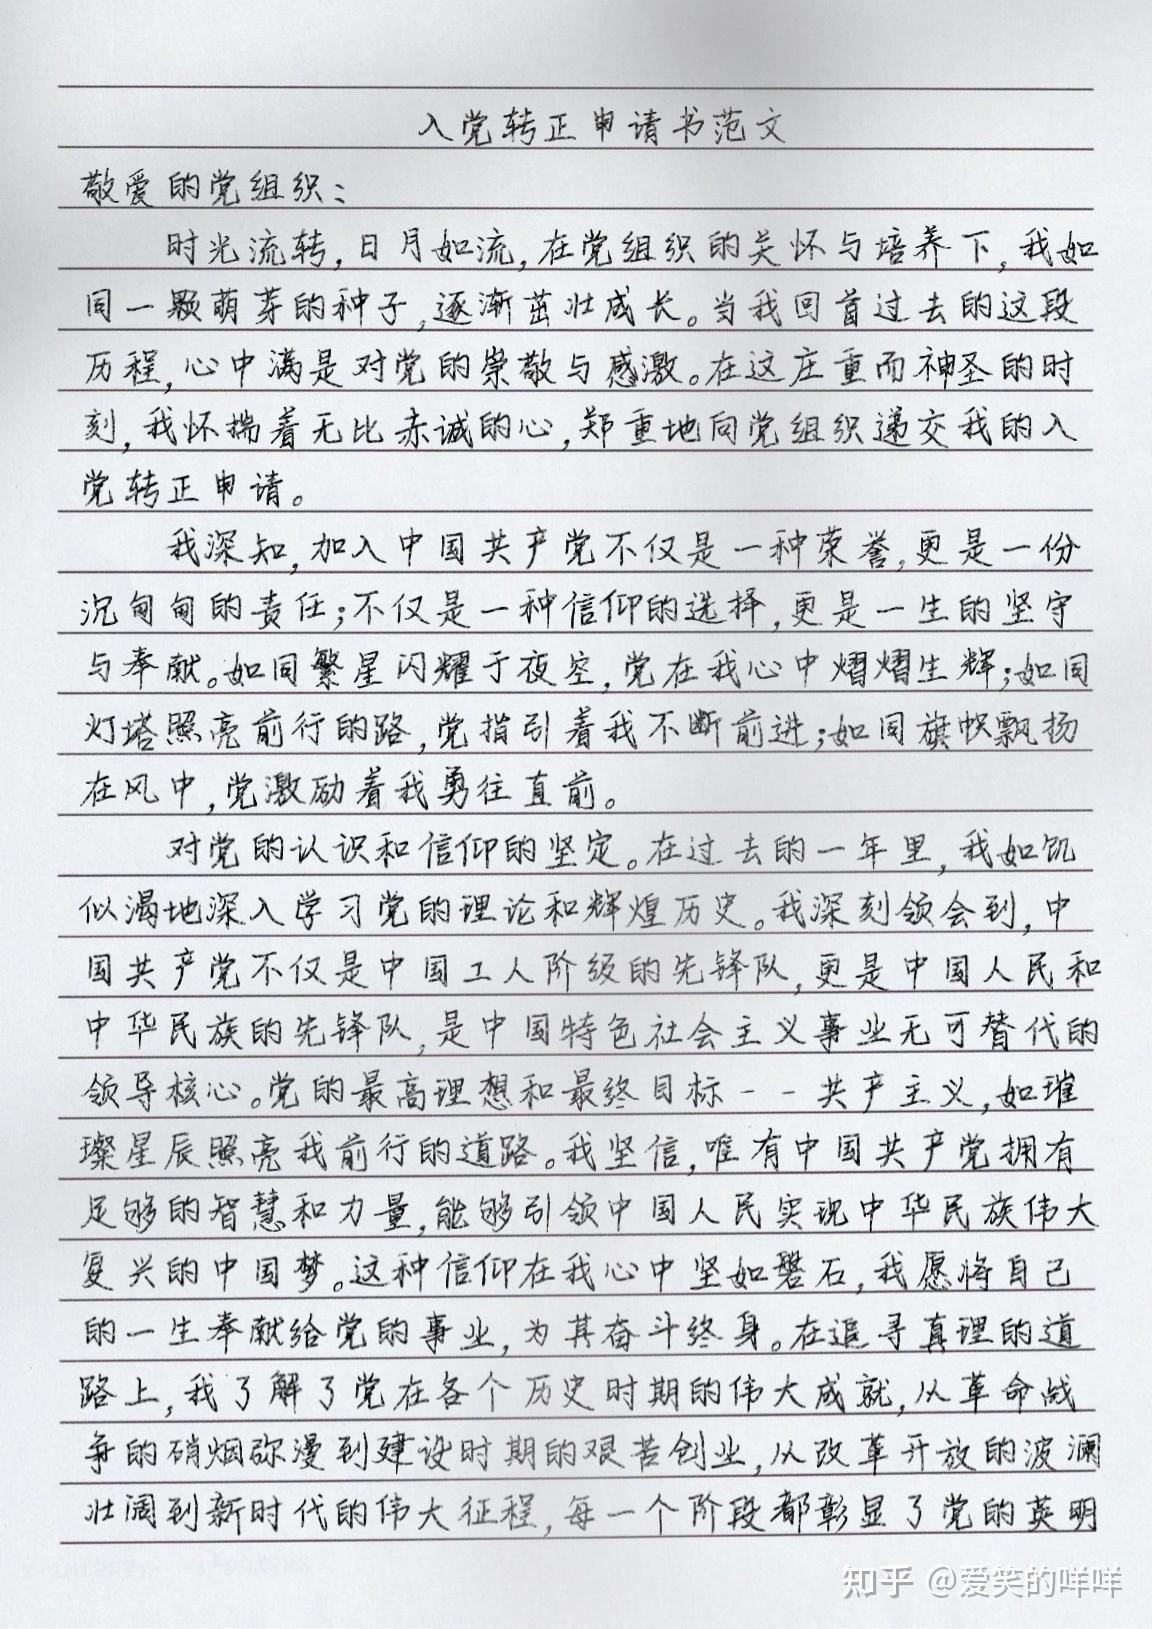 入党转正申请书范文
敬爱的党组织：
时光流转,日月如流,在党组织的关怀与培养下,我如
同一颗萌芽的种子,逐渐茁壮成长。当我回首过去的这段
历程,心中满是对党的崇敬与感激。在这庄重而神圣的时
刻,我怀揣着无比赤诚的心,郑重地向党组织递交我的入
党转正申请。
我深知,加入中国共产党不仅是一种荣誉,更是一份
沉甸甸的责任;不仅是一种信仰的选择,更是一生的坚守
与奉献。如同繁星闪耀于夜空,党在我心中熠熠生辉;如同
灯塔照亮前行的路,党指引着我不断前进;如同旗帜飘扬
在风中,党激励着我勇往直前。
对党的认识和信仰的坚定。在过去的一年里,我如饥
似渴地深入学习党的理论和辉煌历史。我深刻领会到,中
国共产党不仅是中国工人阶级的先锋队,更是中国人民和
中华民族的先锋队,是中国特色社会主义事业无可替代的
领导核心。党的最高理想和最终目标--共产主义,如璀
璨星辰照亮我前行的道路。我坚信,唯有中国共产党拥有
足够的智慧和力量,能够引领中国人民实现中华民族伟大
复兴的中国梦。这种信仰在我心中坚如磐石,我愿将自己
的一生奉献给党的事业,为其奋斗终身。在追寻真理的道
路上,我了解了党在各个历史时期的伟大成就,从革命战
争的硝烟弥漫到建设时期的艰苦创业,从改革开放的波澜
壮阔到新时代的伟大征程,每一个阶段都彰显了党的英明
知乎 @爱笑的咩咩